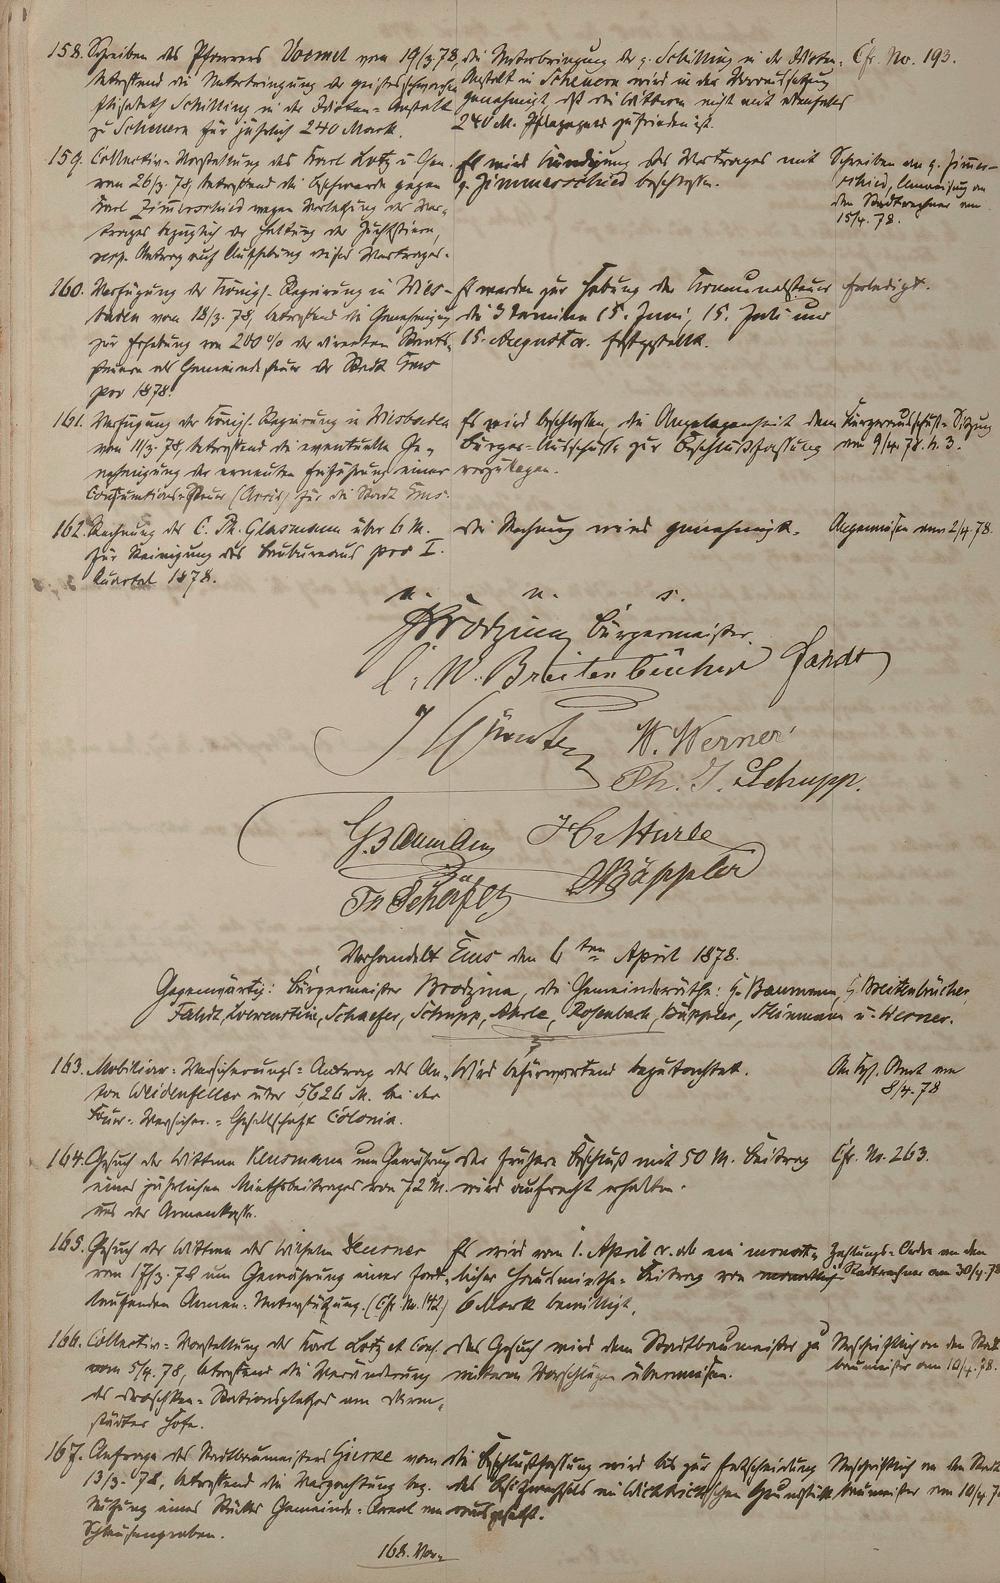 158. Schreiben des Pfarrers Vormet vom 19/3. 78,
betreffend die Unterbringung der geistesschwachen
Elisabeth Schilling in der Idioten-Anstalt
zu Scheuern für jährlich 240 Mark.
die Unterbringung der p. Schilling in der Idioten-
Anstalt in Scheuern wird in der Voraussetzung
genehmigt, daß die Wittwe nicht mit
240 M. Pflegegeld zufrieden ist.
Cfr. No. 193.
159. Collectiv-Vorstellung des Karl Lotz u. Gen.
vom 26/3. 78, betreffend die Beschwerde gegen
Karl Zimmerschied wegen Verletzung des Ver-
trages bezüglich der Haltung der Zuchtstiere,
resp. Antrag auf Aufhebung dieses Vertrages.
Es wird Kündigung des Vertrages mit
p. Zimmerschied beschlossen.
Schreiben an p. Zimmer-
schied, Anweisung an
den Stadtrechner am
15/4. 78.
160. Verfügung der Königl. Regierung in Wies-
baden vom 18/3. 78, betreffend die Genehmigung
zur Erhebung von 200 % der directen Staats-
steuern als Gemeindesteuer der Stadt Ems
pro 1878.
Es werden zur Hebung der Kommunalsteuer
die 3 Termine 15. Juni, 15. Juli und
15. August cr. festgestellt.
Erledigt.
161. Verfügung der Königl. Regierung in Wiesbaden
vom 11/3. 78, betreffend die eventuelle Ge-
nehmigung der erneuten Einführung einer
Consumtions-Steuer (Accis) für die Stadt Ems.
Es wird beschlossen, die Angelegenheit dem
Bürger-Ausschusse zur Beschlußfassung
vorzulegen.
Bürgerausschuß-Sitzung
vom 9/4. 78. N. 3.
162. Rechnung des C. Th. Glasmann über 6 M.
für Reinigung des Baubureaus pro I.
Quartal 1878.
Die Rechnung wird genehmigt.
Angewiesen am 2/4. 78.
v. n. s.
Brodzina Bürgermeister.
C. W. Breitenbücher Fandt
W. Werner
Ph. J. Schupp.
G. Baumann
Fr Schäfer Büppler
Verhandelt Ems den 6ten April 1878.
Gegenwärtig: Bürgermeister Brodzina, die Gemeinderäthe: G. Baumann, Breitenbücher,
Fandt, Loewenstein, Schaefer, Schupp, Rosenbach, Büppler, u. Werner.
163. Mobiliar-Versicherungs-Antrag des An-
ton Weidenfeller über 5626 M. bei der
Feuer-Versicher.-Gesellschaft Colonia.
Wird befürwortend begutachtet.
An Kgl. Amt am
8/4. 78
164. Gesuch der Wittwe Klusmann um Gewährung
eines jährlichen Miethsbeitrages von 72 M.
aus der Armenkasse.
der frühere Beschluß mit 50 M. Beitrag
wird aufrecht erhalten.
Cfr. No. 263.
165. Gesuch der Wittwe des Wilhelm Deusner
vom 17/3. 78 um Gewährung einer fort-
laufenden Armen-Unterstützung. (Cfr. No. 142)
Es wird vom 1. April cr. ab ein monat-
licher Hausmieths-Beitrag von
6 Mark bewilligt.
Zahlungs-Ordre an den
Stadtrechner am 30/4. 78
166. Collectiv-Vorstellung des Karl Lotz et Cons.
vom 5/4. 78, betreffend die Veränderung
des Droschken-Stationsplatzes am Darm-
städter Hofe.
das Gesuch wird dem Stadtbaumeister zu
weiteren Vorschlägen überwiesen.
Urschriftlich an den Stadt-
baumeister am 10/4. 78.
167. Anfrage des Stadtbaumeisters vom
13/3. 78, betreffend die Verpachtung bez.
Nutzung eines Stückes Gemeinde-Areal am
Schlausengraben.
die Beschlußfassung wird bis zur Entscheidung
des Grundstück
ausgesetzt.
Urschriftlich an den Stadt-
baumeister am 10/4. 7
168. Ver-